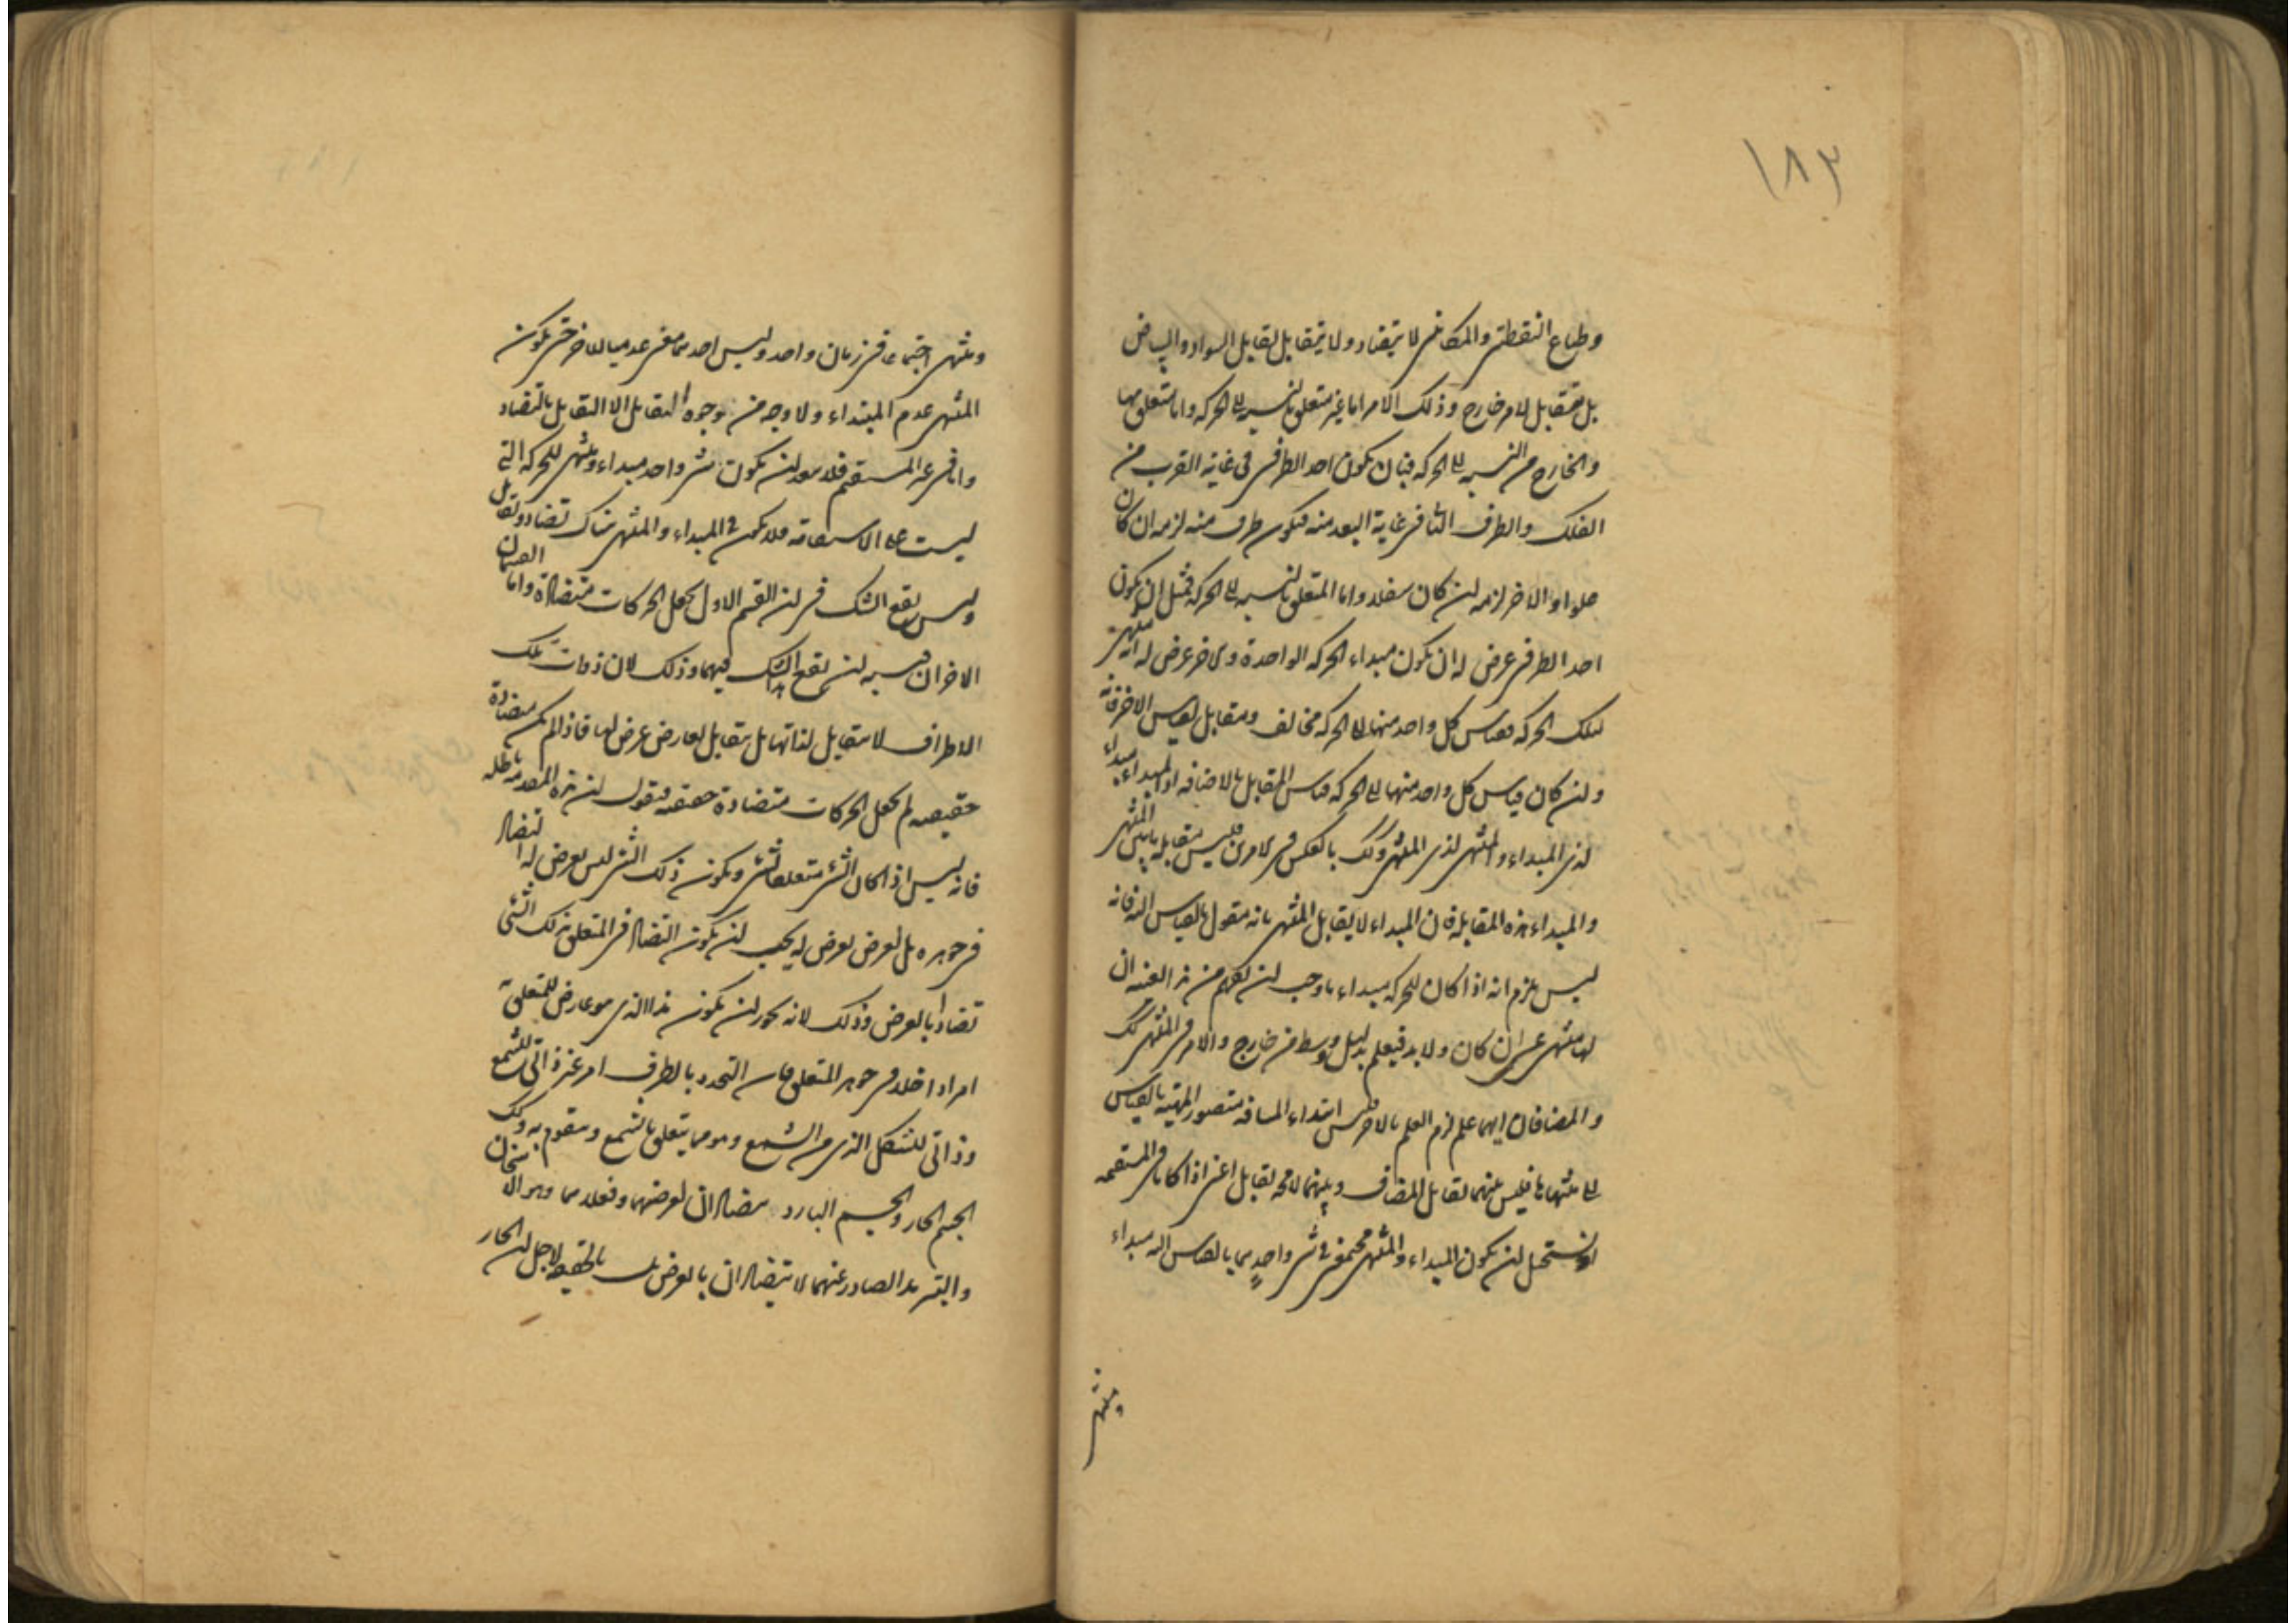 ١٨٣
وطباع النقطتين والمكانين لا يتضاد ولا يتقابل تقابل السواد والبياض
بل يتقابل لامر خارج وذلك الامر اما غير متعلق بالنسبة الى الحركة واما متعلق بها
والخارج من النسبة الى الحركة فبان يكون احد الطرفين في غاية القرب من
الفلك والطرف الثاني في غاية البعد منه فيكون طرف منه لزمه ان كان
علوا والاخر لزمه ان كان سفلا واما المتعلق بالنسبة الى الحركة فمثل ان يكون
احد الطرفين عرض له ان يكون مبداء الحركة الواحدة والاخر عرض له انه منتهى
لتلك الحركة فقياس كل واحد منهما الى الحركة مخالف ومقابل لقياس الاخر فانه
وان كان قياس كل واحد منهما الى الحركة قياس المقابل بالاضافة اذ المبداء مبداء
لذي المبداء والمنتهى لذي المنتهى وكذلك بالعكس فليس يتقابل المنتهى
والمبداء هذه المقابلة فان المبداء لا يقابل المنتهى بانه مقول بالقياس اليه فانه
ليس يلزم انه اذا كان للحركة مبداء ما وجب ان يفهم من ان
لها منتهى عسى ان كان ولا بد فيعلم بدليل ووسط من خارج والامر في المنتهى كذلك
والمضافان ايهما علم لزم العلم بالاخر فليس ابتداء المسافة متصور المهية بالقياس
الى منتهاها فليس بينهما تقابل المضاف وبينهما لا محالة تقابل اعني اذا كانا في المستقيمة
اذ يستحيل ان يكون المبداء والمنتهى مجتمعين في شي واحد هما بالقياس اليه مبداء
ومنتهى
ومنتهى اجتماعا في زمان واحد وليس احدهما معنى عدميا للاخر حتى يكون
المنتهى عدم المبتداء ولا وجه من وجوه التقابل الا التقابل بالتضاد
واما في غير المستقيم فلا يبعد ان يكون شي واحد مبداء ومنتهى للحركة التي
ليست على الاستقامة فلا يكون في المبداء والمنتهى هناك تضاد وتقابل
وليس يقع الشك في ان القسم الاول يجعل الحركات متضادة واما القسمان
الاخران فيشبه ان يقع الشك فيهما وذلك لان ذوات تلك
الاطراف لا يتقابل لذاتها بل يتقابل لعارض عرض لها فاذا لم يكن متضادة
حقيقية لم يجعل الحركات متضادة حقيقة فنقول ان هذه المقدمة باطلة
فانه ليس اذا كان الشي متعلقا بشي ويكون ذلك الشي ليس يعرض له التضاد
في جوهره بل لعرض يعرض له يجب ان يكون التضاد في المتعلق بذلك الشي
تضادا بالعرض وذلك لانه يجوز ان يكون هذا الذي هو عارض للمتعلق به
امرا داخلا في جوهر المتعلق فان التحدد بالطرف امر غير ذاتي للشمع
وذاتي للشكل الذي من الشمع وهو مما يتعلق بالشمع ويتقوم به وكذلك
الجسم الحار والجسم البارد يتضادان لعرضيهما وفعلاهما وهو الاسخان
والتبريد الصادر عنهما لا يتضادان بالعرض بل بالحقيقة لاجل ان الحار